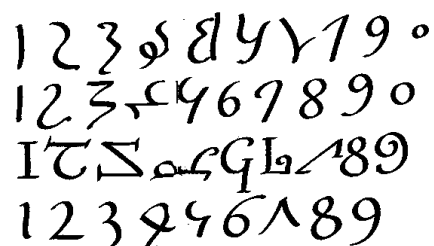 1 2 3 4 5 6 7 8 9 0
1 2 3 4 5 6 7 8 9 0
1 2 3 4 5 6 7 8 9
1 2 3 4 5 6 7 8 9